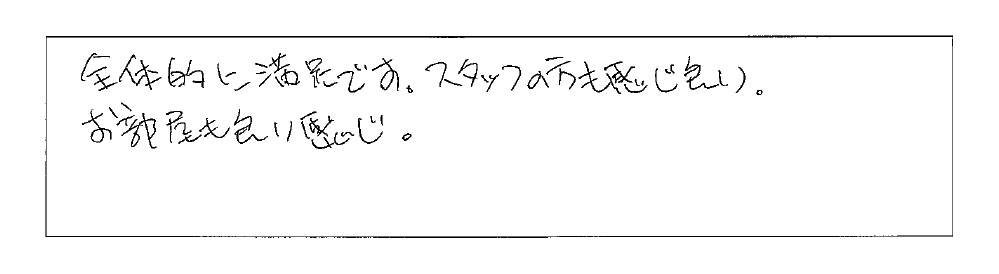 全体的に満足です。スタッフの方も感じ良い。
お部屋も良い感じ。